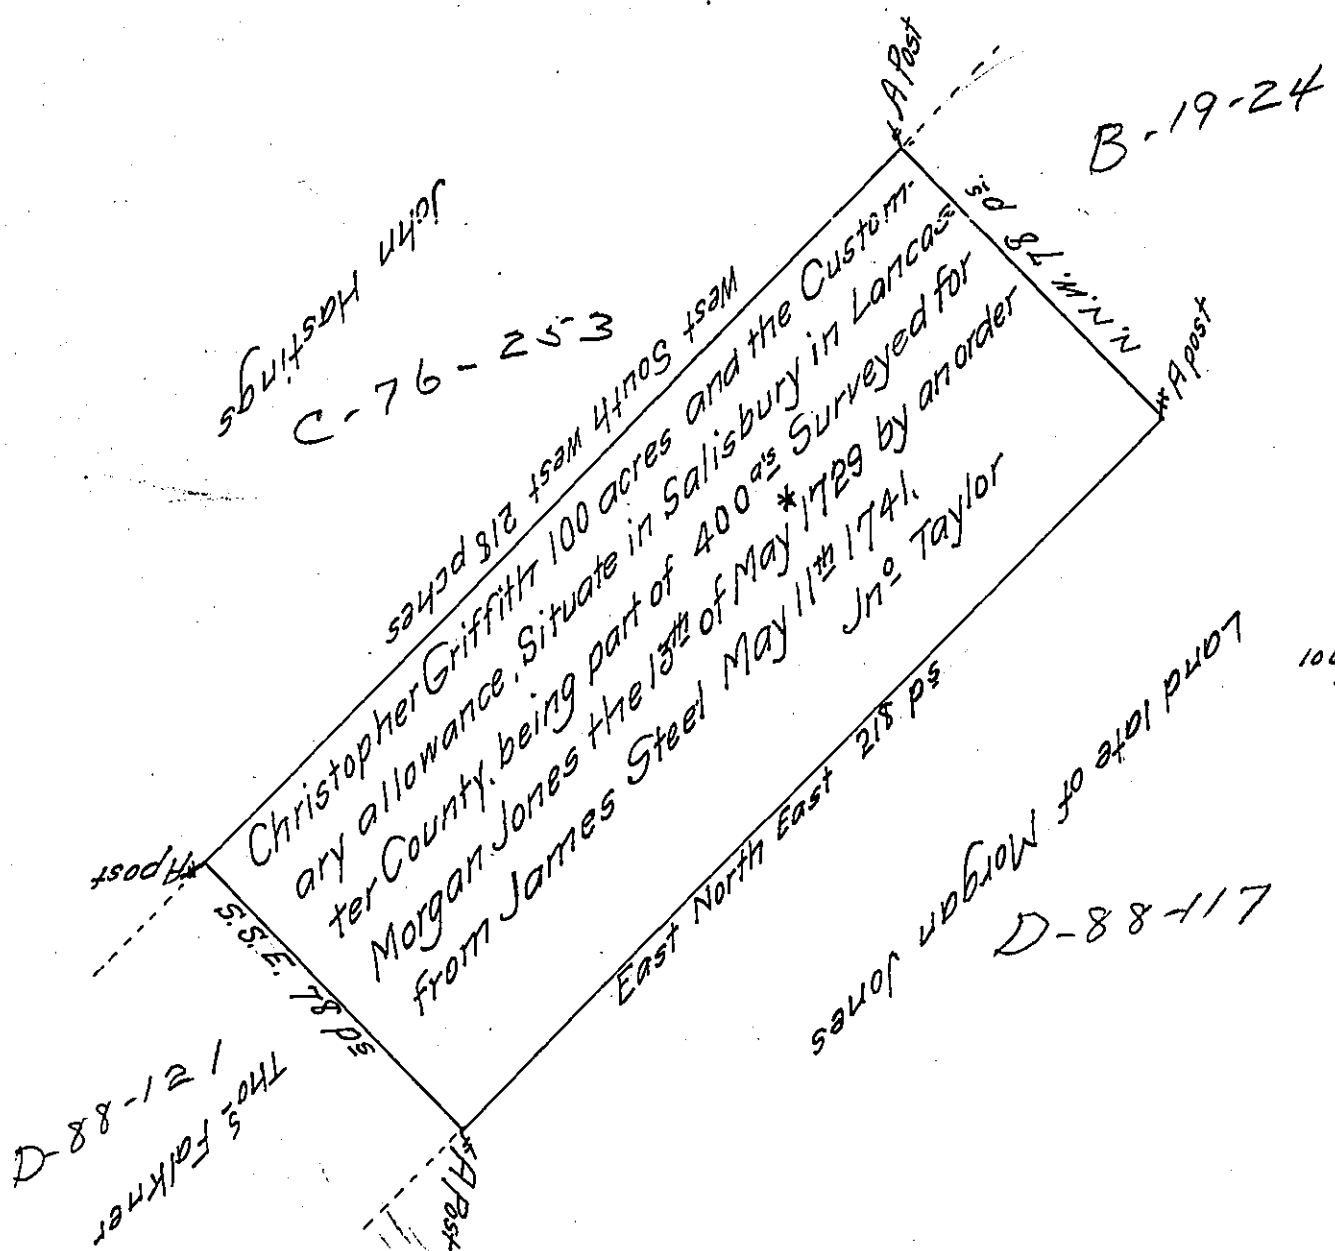 A Post
B-19-24
John Hastings
C-76-253
West South west 218 pches
N.N.W. 78 ps
A post
Christopher Griffith 100 acres and the Custom-
ary allowance, Situate in Salisbury in Lancas
ter County, being part of 400 a's Surveyed for
Morgan Jones the 13th of May * 1729 by an order
from James Steel May 11th 1741.
Jno Taylor
A post
S.S.E. 78 ps
East North East 218 ps
Land late of Morgan Jones
D-88-117
D-88-121
Thos Falkner
A Post